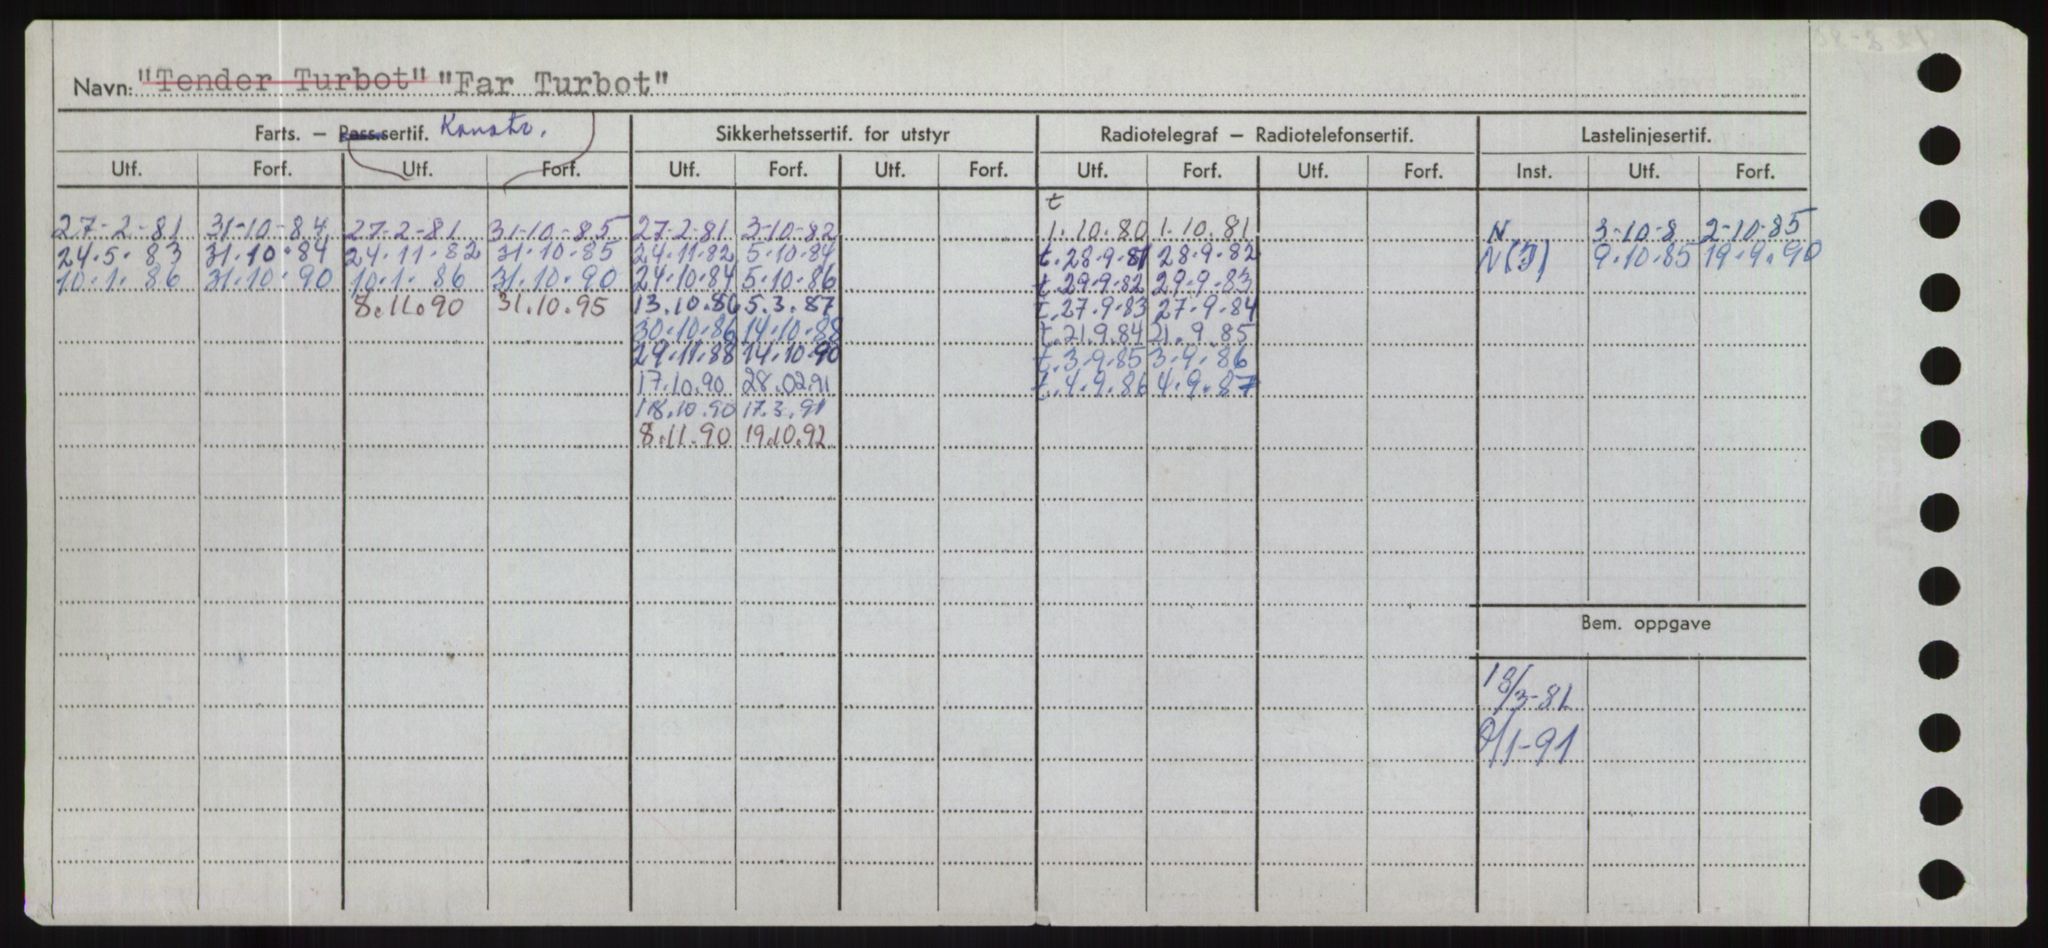 Navn: "Tender Turbot" "Far Turbot"
Farts. — Pass.sertif. Konstr. Sikkerhetssertif. for utstyr Radiotelegraf — Radiotelefonsertif. Lastelinjesertif.
Utf. Forf. Utf. Forf. Utf. Forf. Utf. Forf. Utf. Forf. Utf. Forf. Inst. Utf. Forf.
t
27-2-81 31-10-84 27-2-81 31-10-85 27-2-81 3-10-82 1.10.80 1.10.81 N 3-10-8 2-10-85
24.5.83 31.10.84 24.11.82 31.10.85 24.11.82 5.10.84 t.28.9.81 28.9.82 N(J) 9.10.85 19.9.90
10.1.86 31.10.90 10.1.86 31.10.90 24.10.84 5.10.86 t.29.9.82 29.9.83
8.11.90 31.10.95 13.10.86 5.3.87 t.27.9.83 27.9.84
30.10.86 14.10.88 t.21.9.84 21.9.85
29.11.88 14.10.90 t.3.9.85 3.9.86
17.10.90 28.02.91 t.4.9.86 4.9.87
18.10.90 17.3.91
8.11.90 19.10.92
Bem. oppgave
18/3-81
/1-91